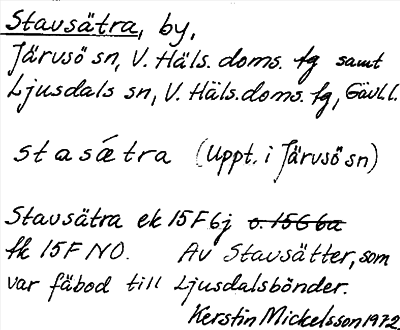 Stavsätra, by,
Järvsö sn, V. Häls. doms. fg samt
Ljusdals sn, V. Häls. doms. fg, Gävl. l.
stasǽtra (Uppt. i Järvsö sn)
Stavsätra ek 15F6j o. 15G6a
fk 15F NO. Av Stavsätter, som
var fäbod till Ljusdalsbönder.
Kerstin Mickelsson 1972.